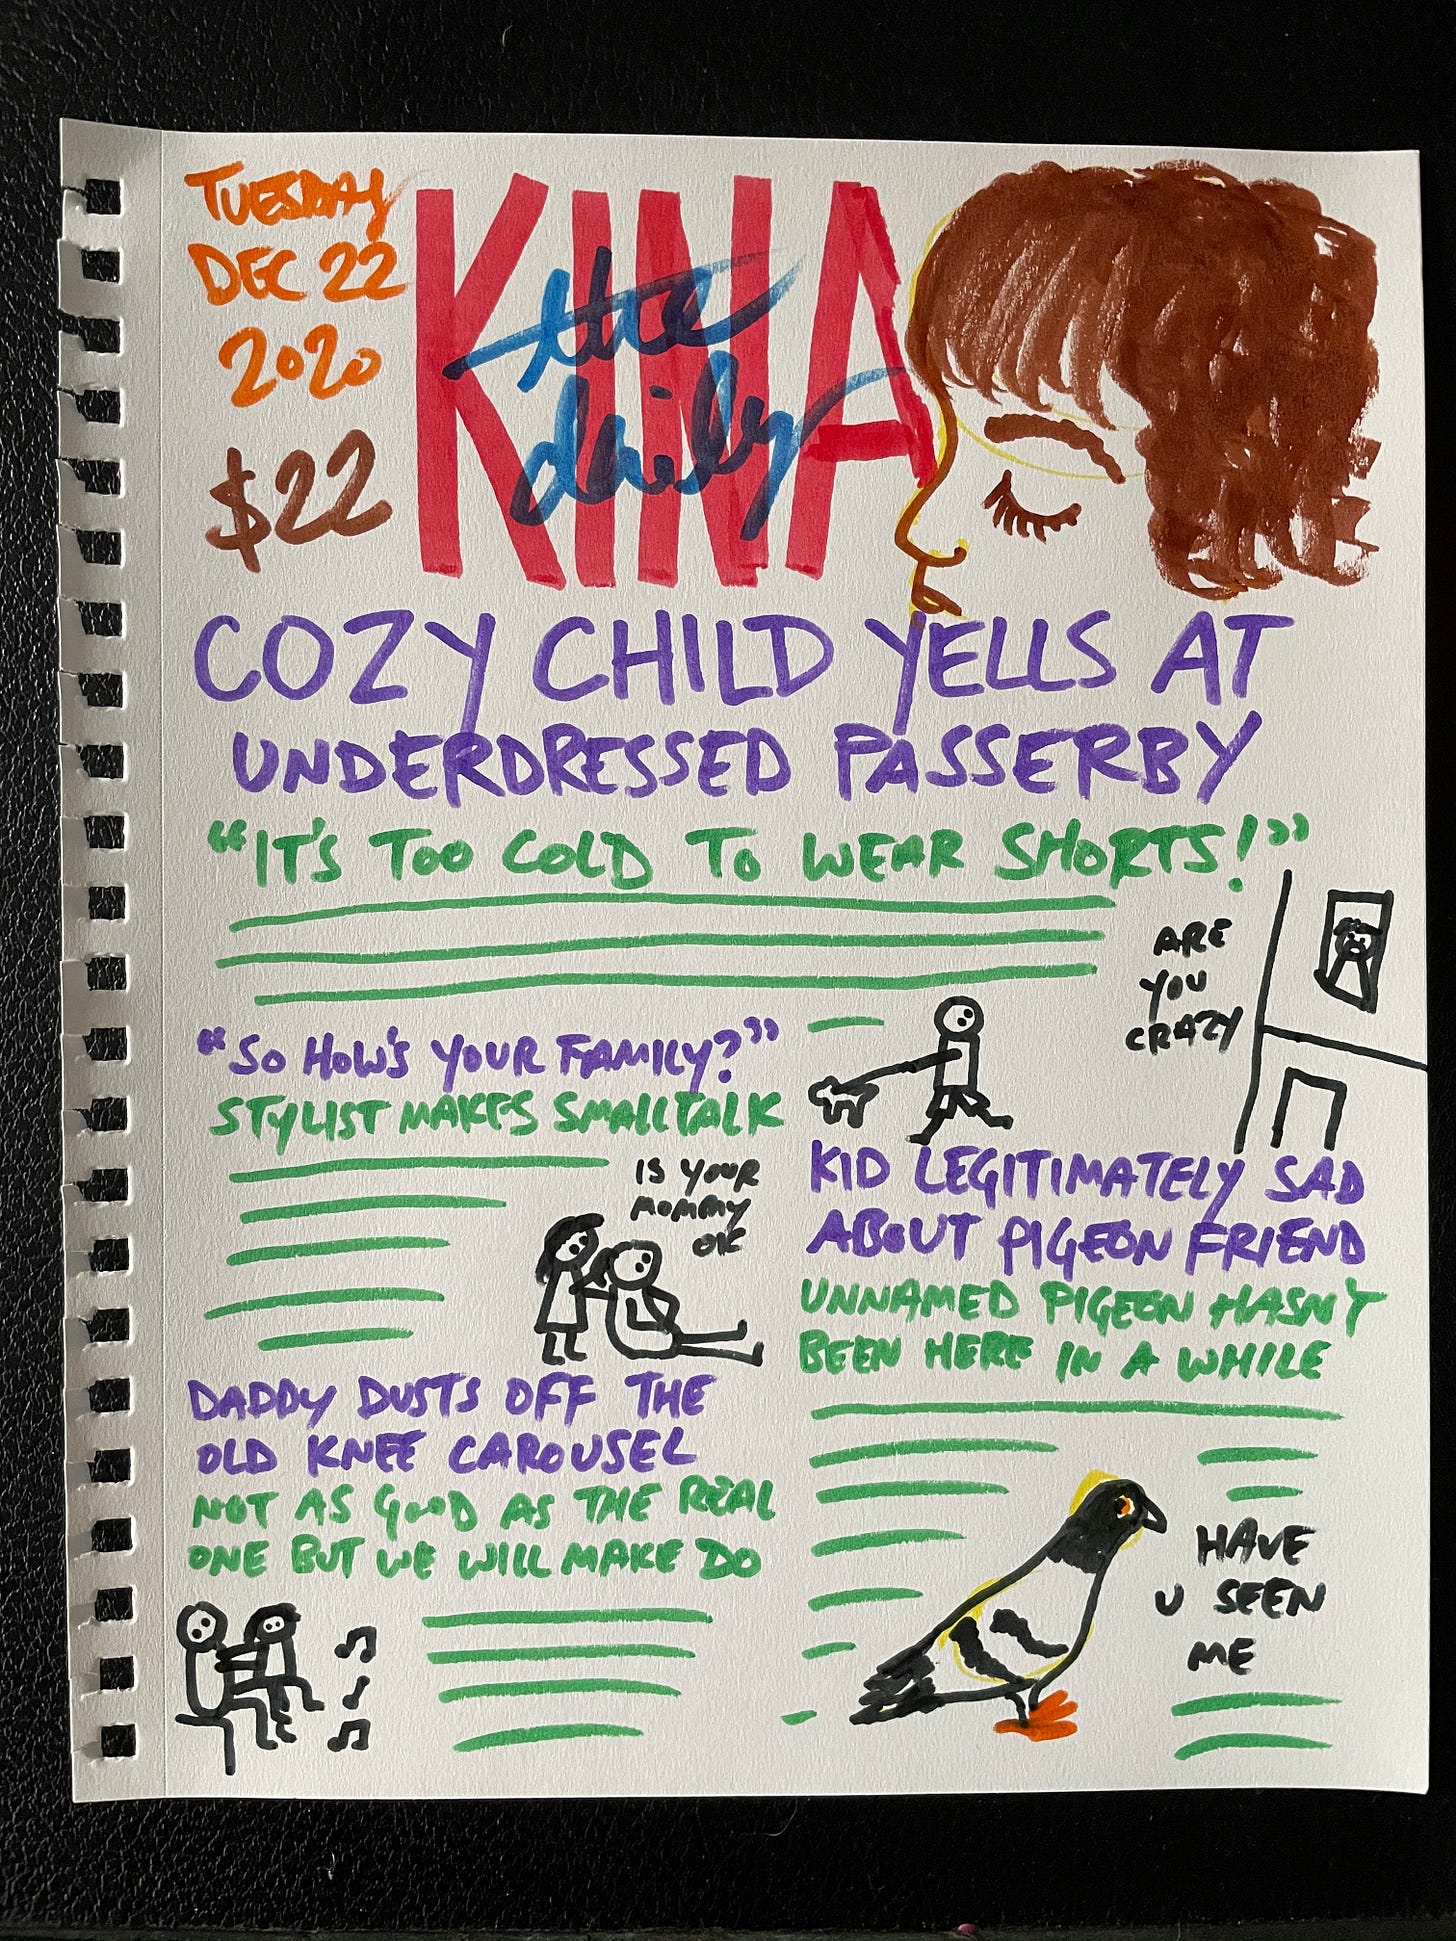 TUESDAY
DEC 22
2020
$22
KINA
the
daily
COZY CHILD YELLS AT
UNDERDRESSED PASSERBY
"IT'S TOO COLD TO WEAR SHORTS!"
ARE
YOU
CRAZY
"SO HOW'S YOUR FAMILY?"
STYLIST MAKES SMALLTALK
IS YOUR
MOMMY
OK
KID LEGITIMATELY SAD
ABOUT PIGEON FRIEND
UNNAMED PIGEON HASN'T
BEEN HERE IN A WHILE
HAVE
U SEEN
ME
DADDY DUSTS OFF THE
OLD KNEE CAROUSEL
NOT AS GOOD AS THE REAL
ONE BUT WE WILL MAKE DO